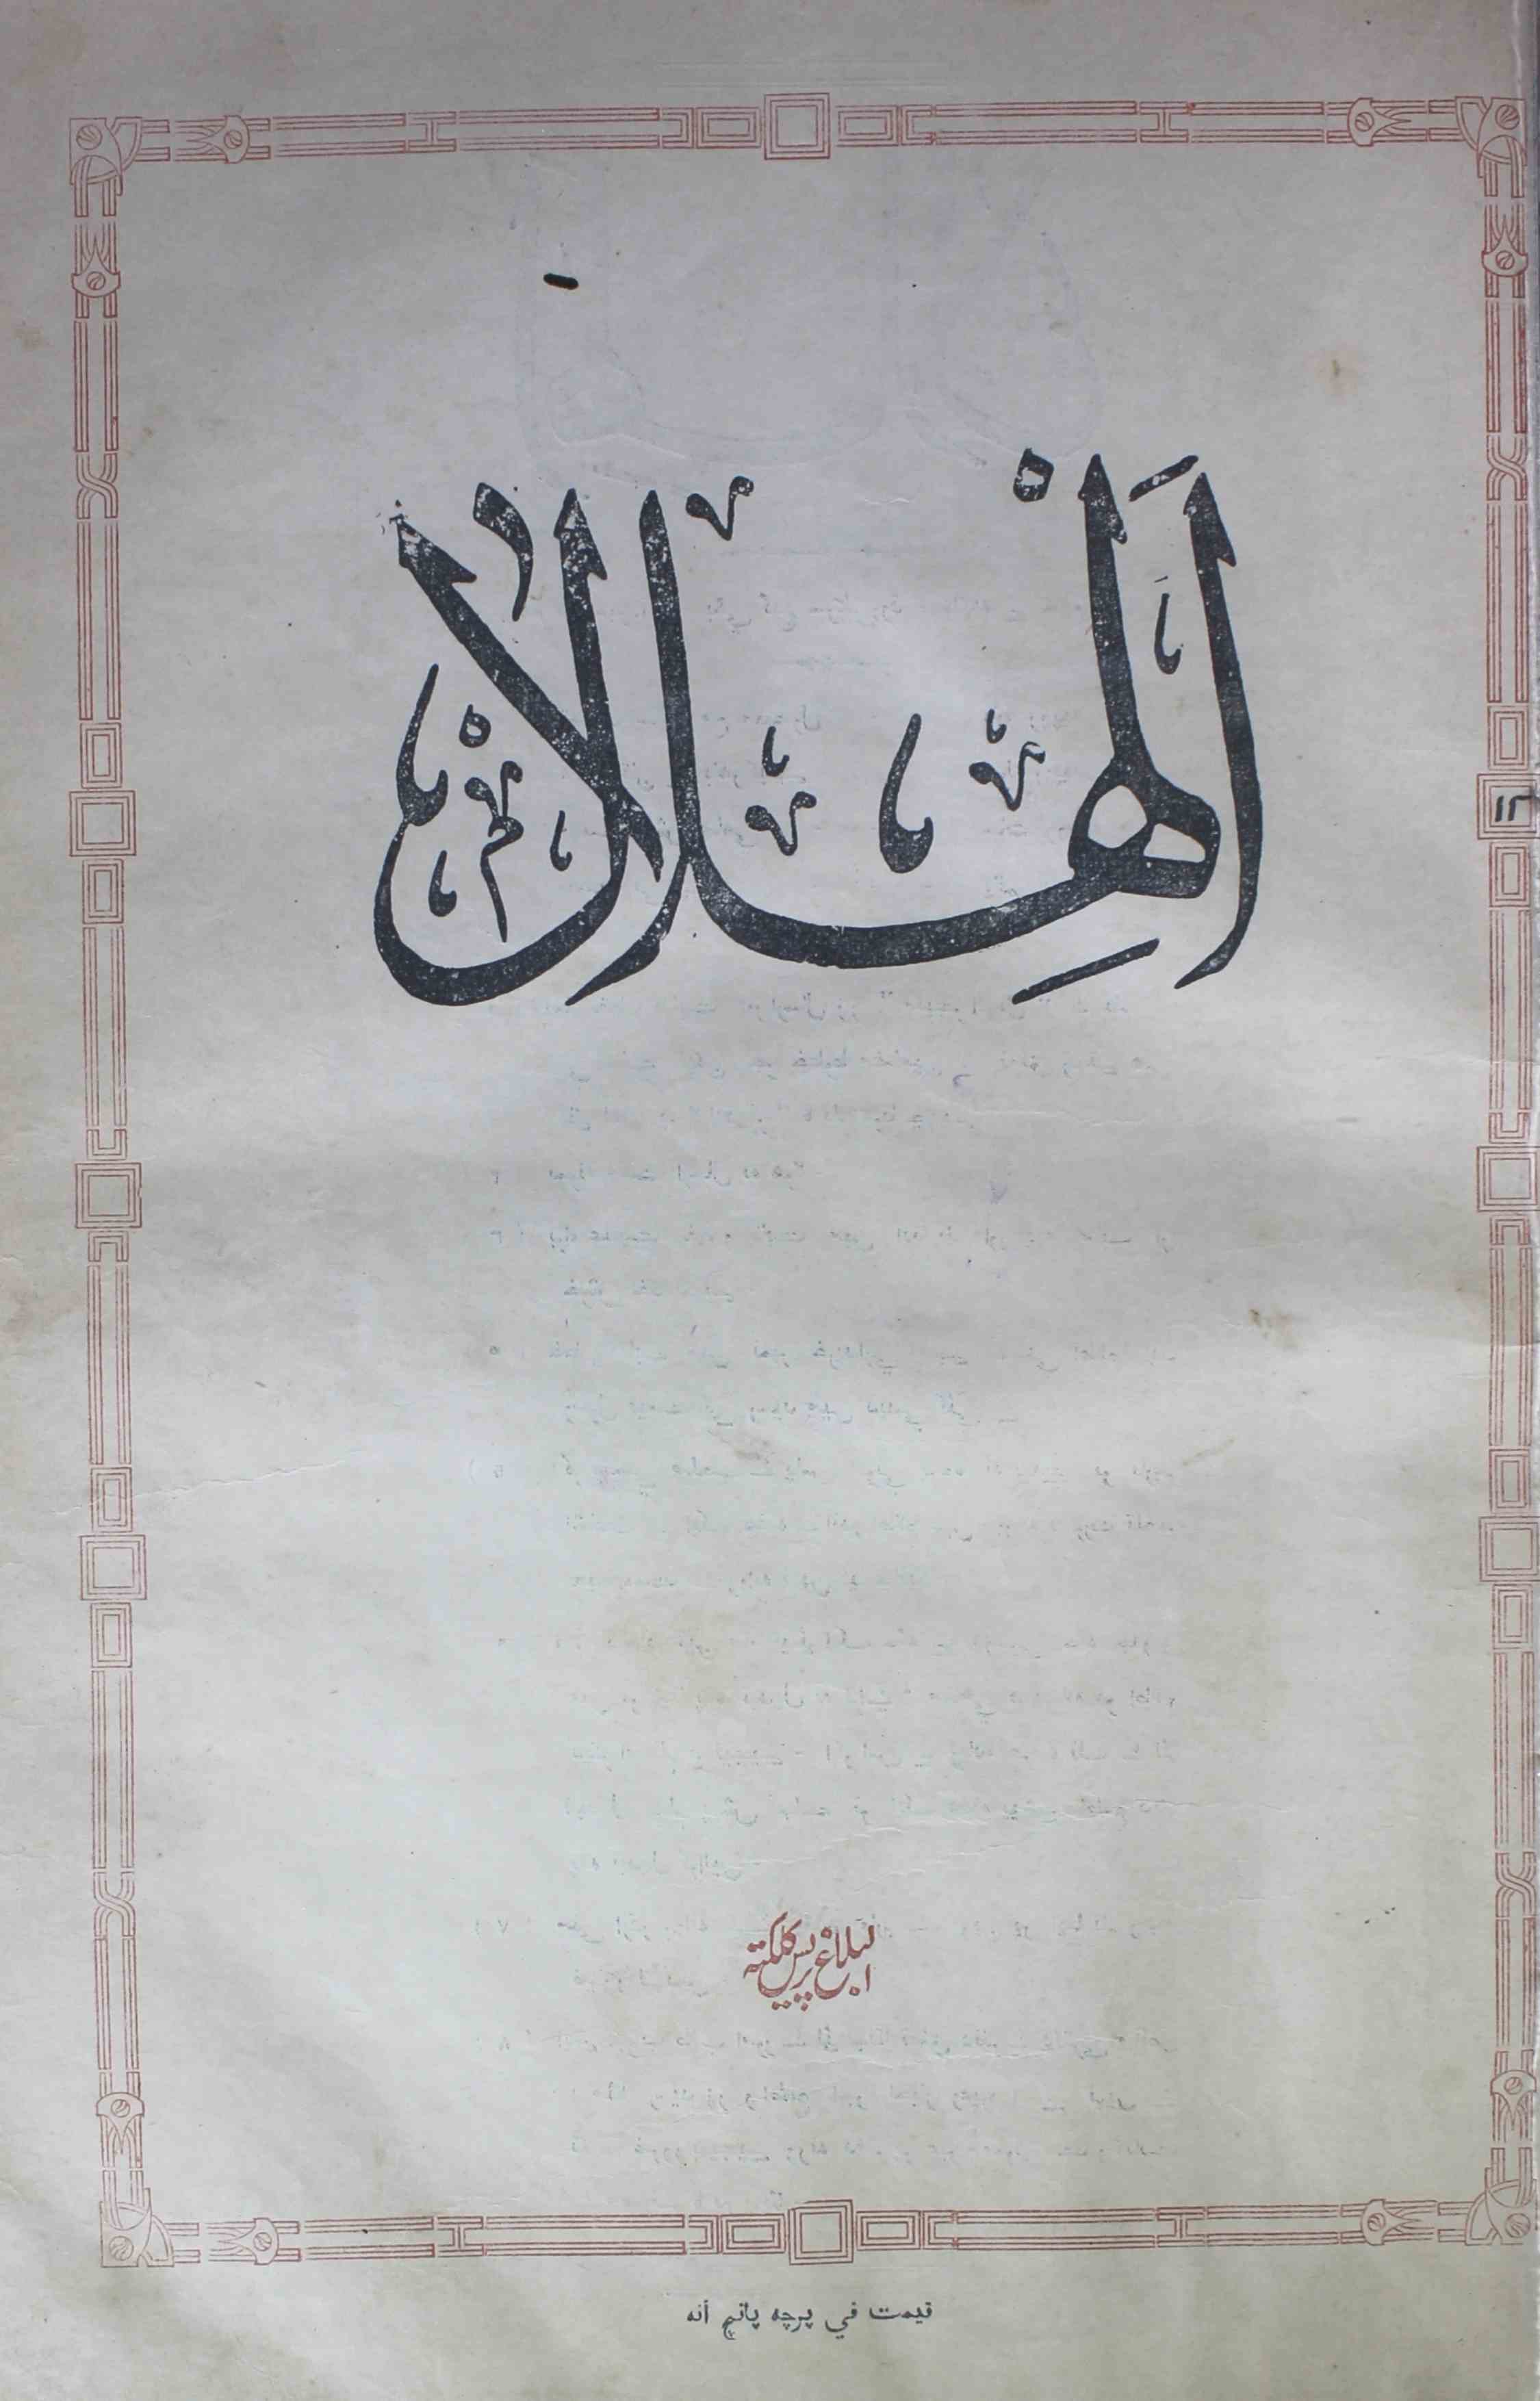 الهلال
۱۲
البلاغ پریس کلکته
قیمت في پرچه پانچ آنه